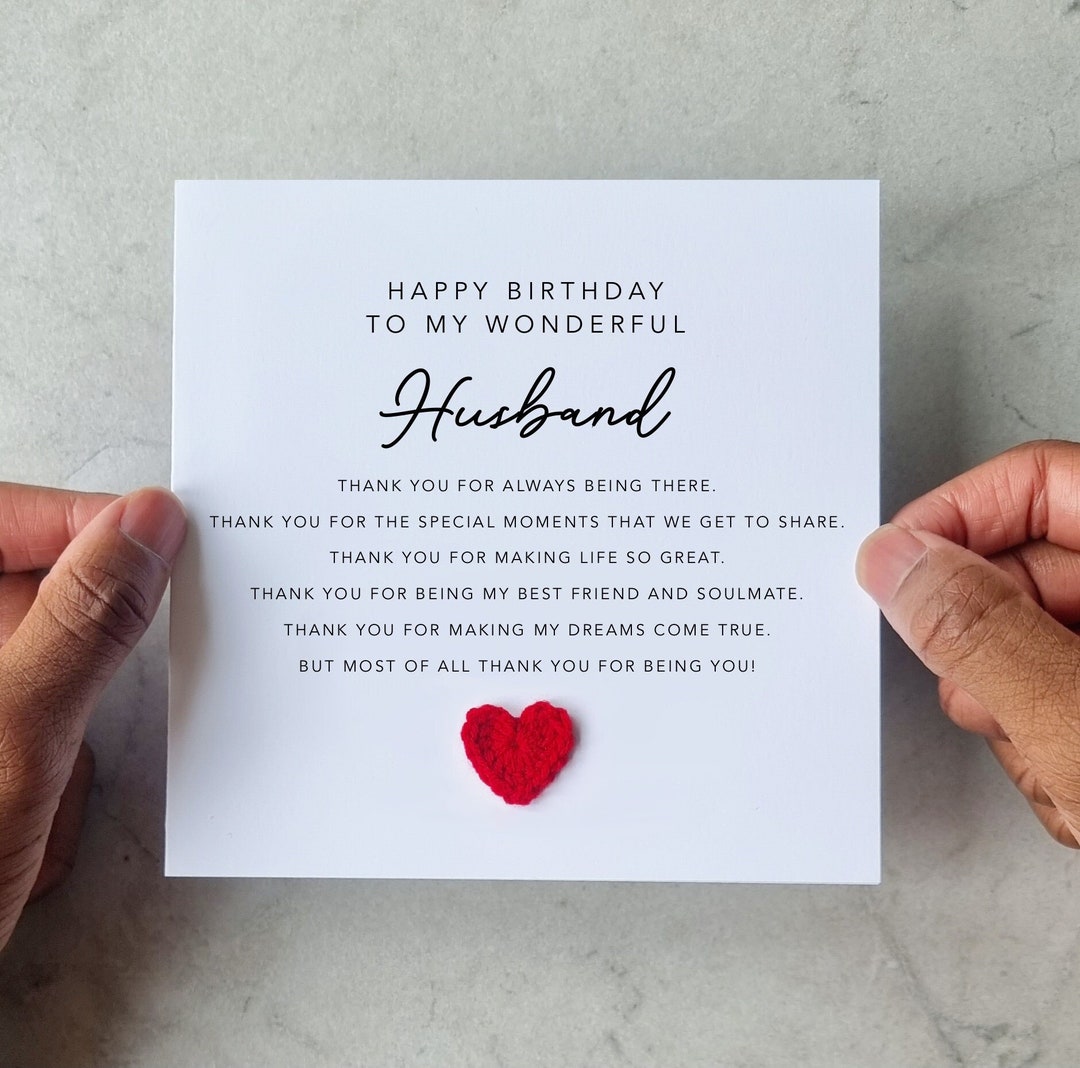 HAPPY BIRTHDAY
TO MY WONDERFUL
Husband
THANK YOU FOR ALWAYS BEING THERE.
THANK YOU FOR THE SPECIAL MOMENTS THAT WE GET TO SHARE.
THANK YOU FOR MAKING LIFE SO GREAT.
THANK YOU FOR BEING MY BEST FRIEND AND SOULMATE.
THANK YOU FOR MAKING MY DREAMS COME TRUE.
BUT MOST OF ALL THANK YOU FOR BEING YOU!